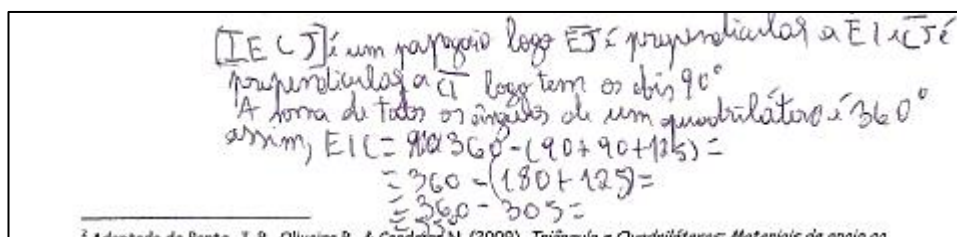 [IECJ] é um papagaio logo EJ é perpendicular a EI e CJ é
perpendicular a CI logo tem os dois 90°
A soma de todos os ângulos de um quadrilátero é 360°
assim, EIC = 360-(90+90+125)=
= 360 - (180+125)=
= 360 - 305=
= 55
² Adaptado de Ponte, J. P., Oliveira P., & Candeias N. (2009). Triângulo e Quadriláteros: Materiais de apoio ao